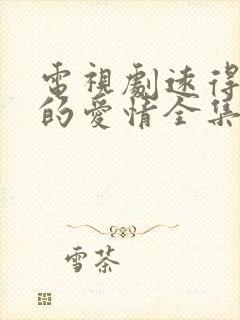 電視劇速得
的愛情全集
雪茶